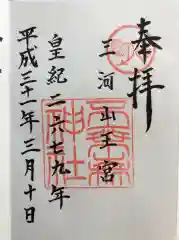 奉拝
三河山王宮
皇紀二六七九年
平成三十一年三月十日